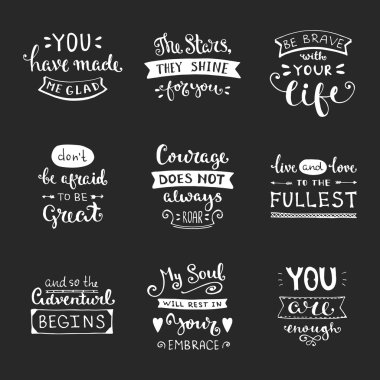 YOU
have made
ME GLAD
The Stars,
THEY SHINE
for you
BE BRAVE
with
YOUR
life
don't
be afraid
TO BE
Great
Courage
DOES NOT
always
ROAR
live and love
TO THE
FULLEST
and so the
Adventure
BEGINS
My Soul
WILL REST IN
Your
EMBRACE
YOU
are
enough